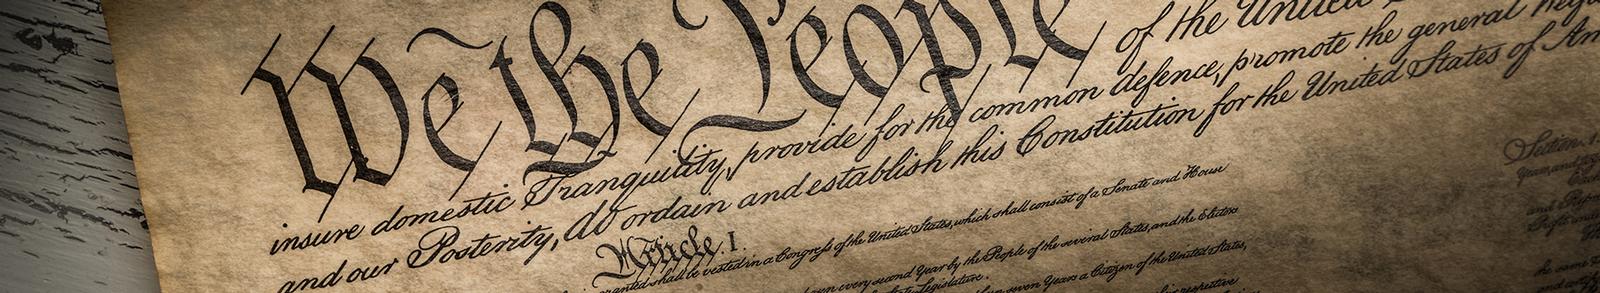 We the People of the United
insure domestic Tranquility, provide for the common defence, promote the general
and our Posterity, do ordain and establish this Constitution for the United States of Am
Article. I.
granted shall be vested in a Congress of the United States, which shall consist of a Senate and House
every second Year by the People of the several States, and the Electors
Legislature.
seven Years a Citizen of the United States,
respective
Section.